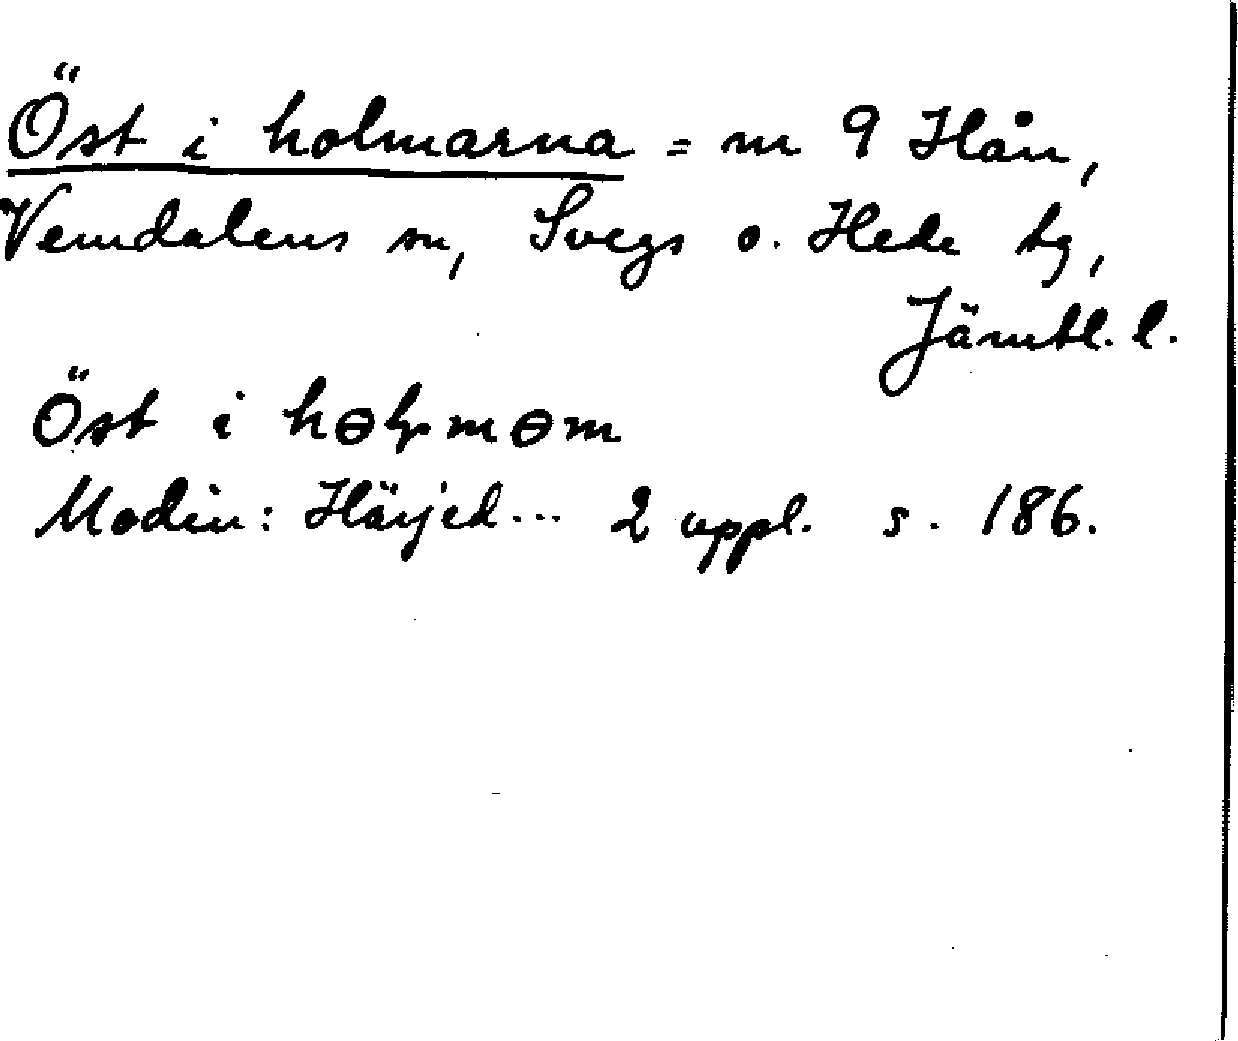 Öst i holmarna = nr 9 Hån,
Vemdalens sn, Svegs o. Hede tg,
Jämtl. l.
Öst i
Modin: Härjed... 2 uppl. s. 186.